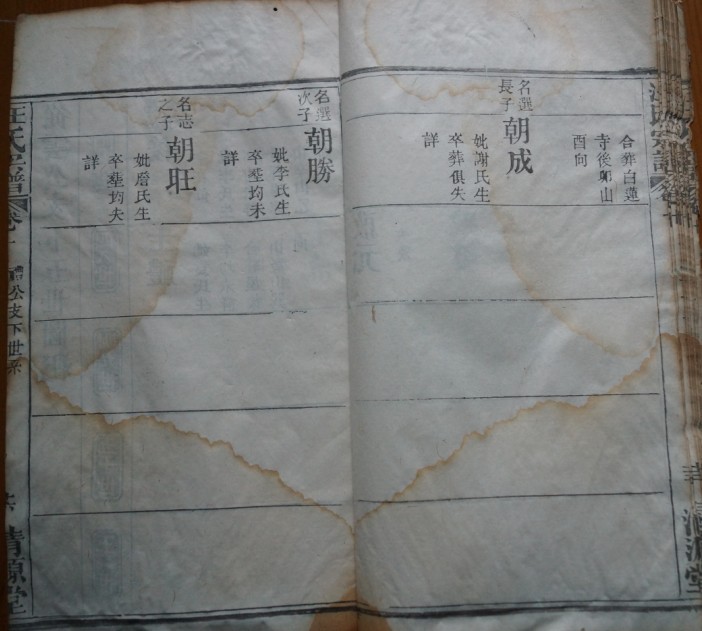 合葬白蓮
寺後卯山
酉向
名選
長子
朝成
妣謝氏生
卒葬俱失
詳
名選
次子
朝勝
妣李氏生
卒塟均未
詳
名志
之子
朝旺
妣詹氏生
卒塟均失
詳
汪氏宗譜
卷
公支下世系
清源堂